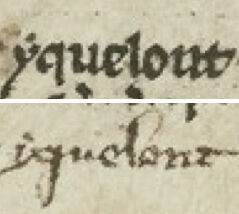 ẏquelont
ẏquelont